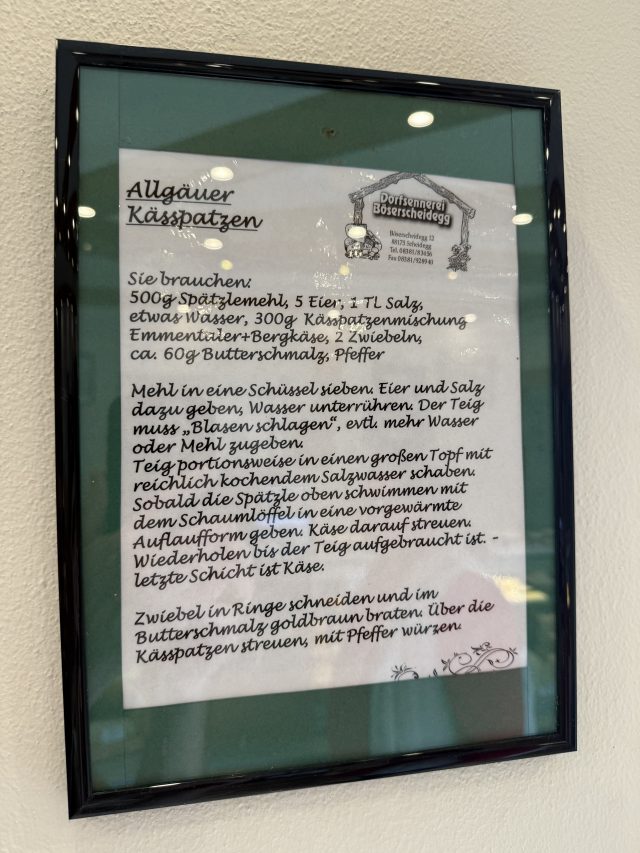 Allgäuer
Kässpatzen
Dorfsennerei
Böserscheidegg
Böserscheidegg 12
88175 Scheidegg
Tel. 08381/83456
Fax 08381/928940
Sie brauchen:
500g Spätzlemehl, 5 Eier, 1 Tl Salz,
etwas Wasser, 300g Kässpatzenmischung
Emmentaler+Bergkäse, 2 Zwiebeln,
ca. 60g Butterschmalz, Pfeffer
Mehl in eine Schüssel sieben. Eier und Salz
dazu geben, Wasser unterrühren. Der Teig
muss „Blasen schlagen“, evtl. mehr Wasser
oder Mehl zugeben.
Teig portionsweise in einen großen Topf mit
reichlich kochendem Salzwasser schaben.
Sobald die Spätzle oben schwimmen mit
dem Schaumlöffel in eine vorgewärmte
Auflaufform geben. Käse darauf streuen.
Wiederholen bis der Teig aufgebraucht ist. -
letzte Schicht ist Käse.
Zwiebel in Ringe schneiden und im
Butterschmalz goldbraun braten. Über die
Kässpatzen streuen, mit Pfeffer würzen.